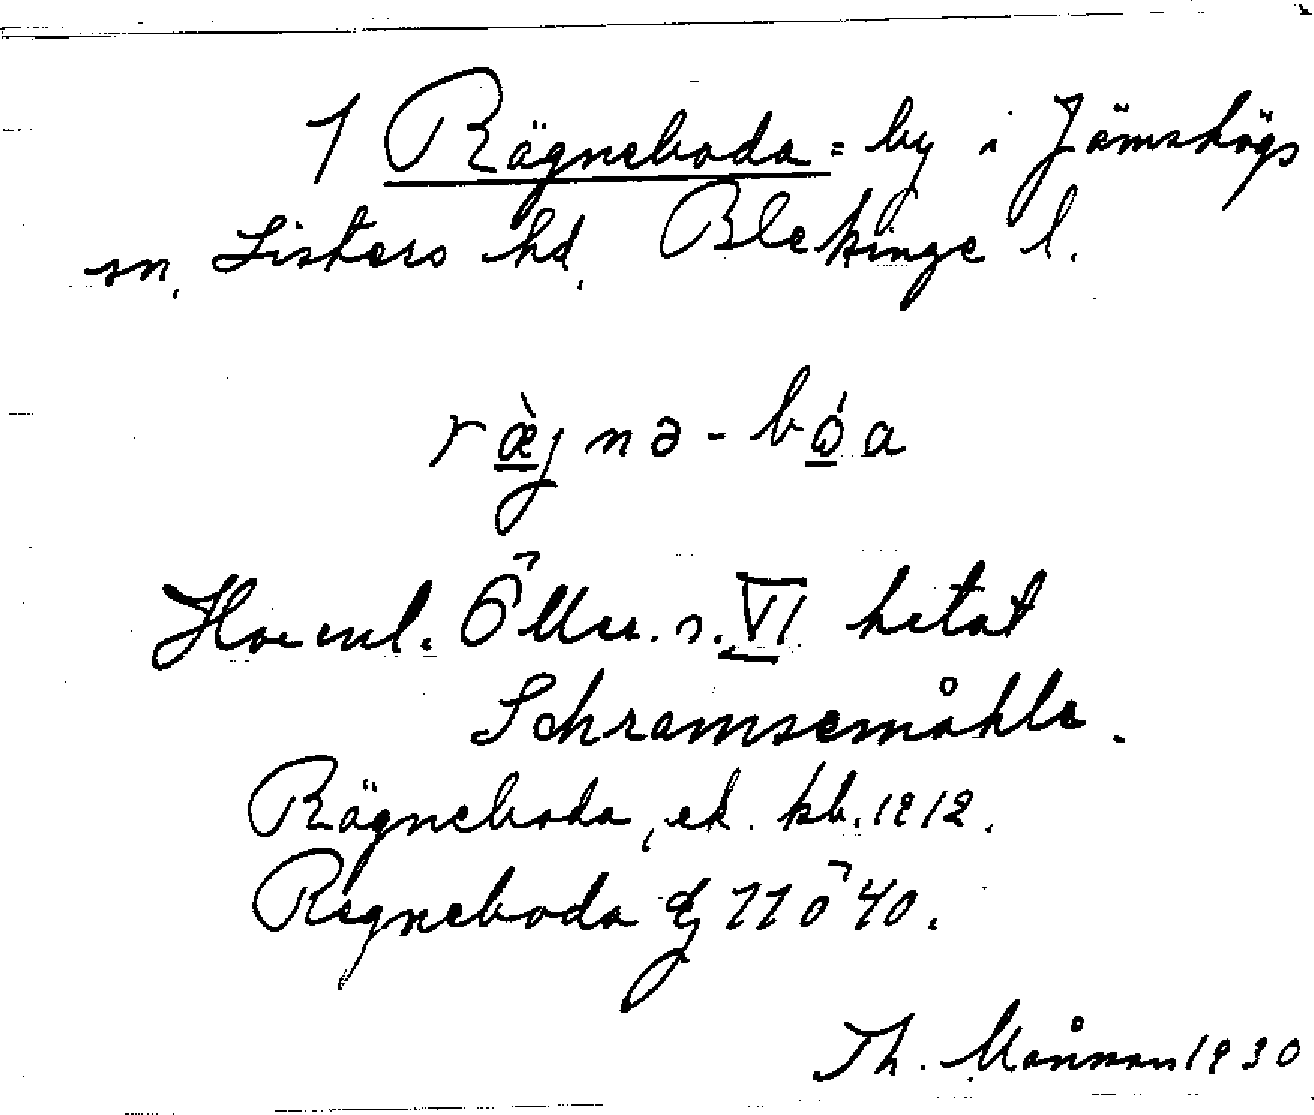 1 Rägneboda = by i Jämshögs
sn. Listers hd. Blekinge l.
ræ̀jnə-bóa
s. VI hetat
Schramsemåhla.
Rägneboda, ek. kb. 1812.
Regneboda 11 ö 40.
Th. Månman 1930